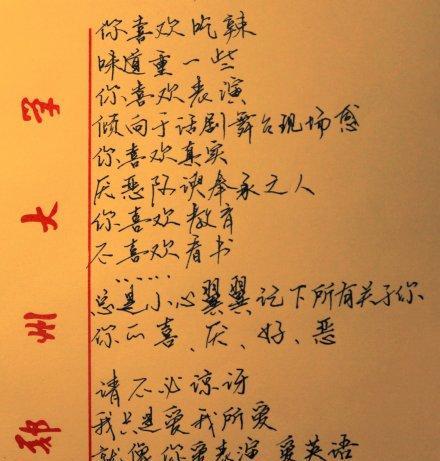 你喜欢吃辣
味道重一些
你喜欢表演
倾向于话剧舞台现场感
你喜欢真实
厌恶阿谀奉承之人
你喜欢教育
不喜欢看书
……
总是小心翼翼记下所有关于你
你的喜、厌、好、恶
请不必谅讶
我只是爱我所爱
就像你爱表演 爱英语
郑州大学